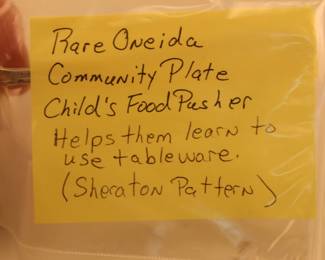 Rare Oneida
Community Plate
Child's Food Pusher
Helps them learn to
use tableware.
(Sheraton Pattern)